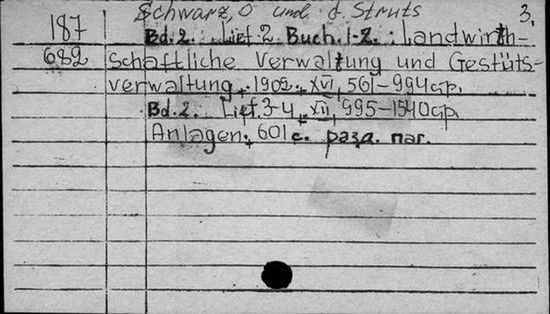 Schwarz, O und J. Struts 3.
187 Bd. 2. Lief. 2. Buch. 1-2. : Landwirth-
682 schaftliche Verwaltung und Gestüts-
verwaltung. 1902. XVI, 561-994 ср.
Bd. 2. Lief. 3-4. XII, 995-1540 ср.
Anlagen. 601 c. разд. паг.